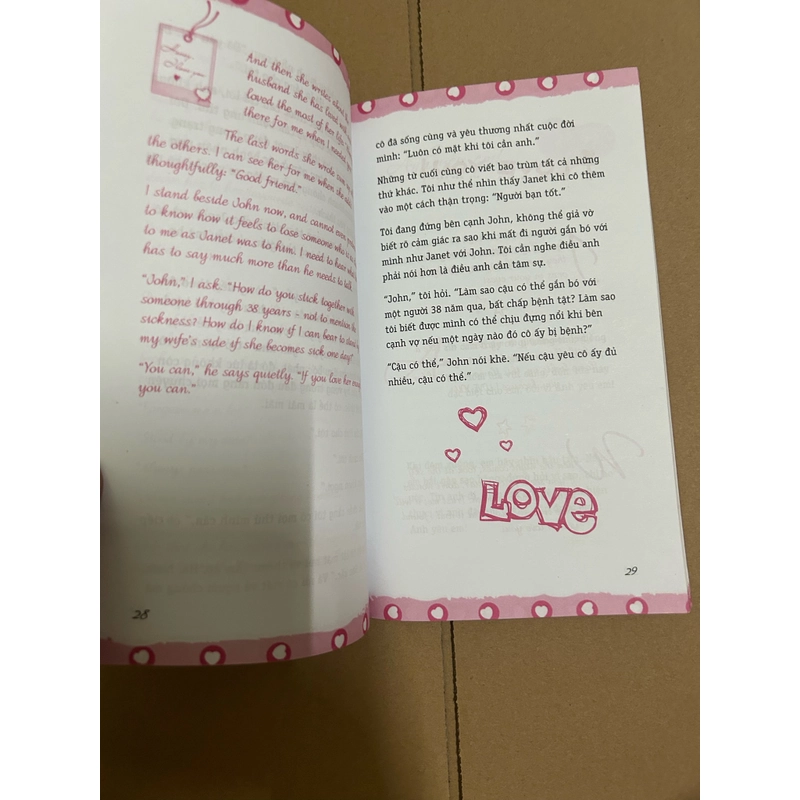 And then she writes about the
husband she has lived with
loved the most of her life:
there for me when I needed
The last words she wrote
the others. I can see her for me when she
thoughtfully: "Good friend."
I stand beside John now, and cannot even
to know how it feels to lose someone who is
to me as Janet was to him. I need to hear what
has to say much more than he needs to talk.
"John," I ask. "How do you stick together with
someone through 38 years - not to mention the
sickness? How do I know if I can bear to stand
my wife's side if she becomes sick one day?"
"You can," he says quietly. "If you love her enough
you can."
28
cô đã sống cùng và yêu thương nhất cuộc đời
mình: "Luôn có mặt khi tôi cần anh."
Những từ cuối cùng cô viết bao trùm tất cả những
thứ khác. Tôi như thể nhìn thấy Janet khi cô thêm
vào một cách thận trọng: "Người bạn tốt."
Tôi đang đứng bên cạnh John, không thể giả vờ
biết rõ cảm giác ra sao khi mất đi người gắn bó với
mình như Janet với John. Tôi cần nghe điều anh
phải nói hơn là điều anh cần tâm sự.
"John," tôi hỏi. "Làm sao cậu có thể gắn bó với
một người 38 năm qua, bất chấp bệnh tật? Làm sao
tôi biết được mình có thể chịu đựng nổi khi bên
cạnh vợ nếu một ngày nào đó cô ấy bị bệnh?"
"Cậu có thể," John nói khẽ. "Nếu cậu yêu cô ấy đủ
nhiều, cậu có thể."
LOVe
29